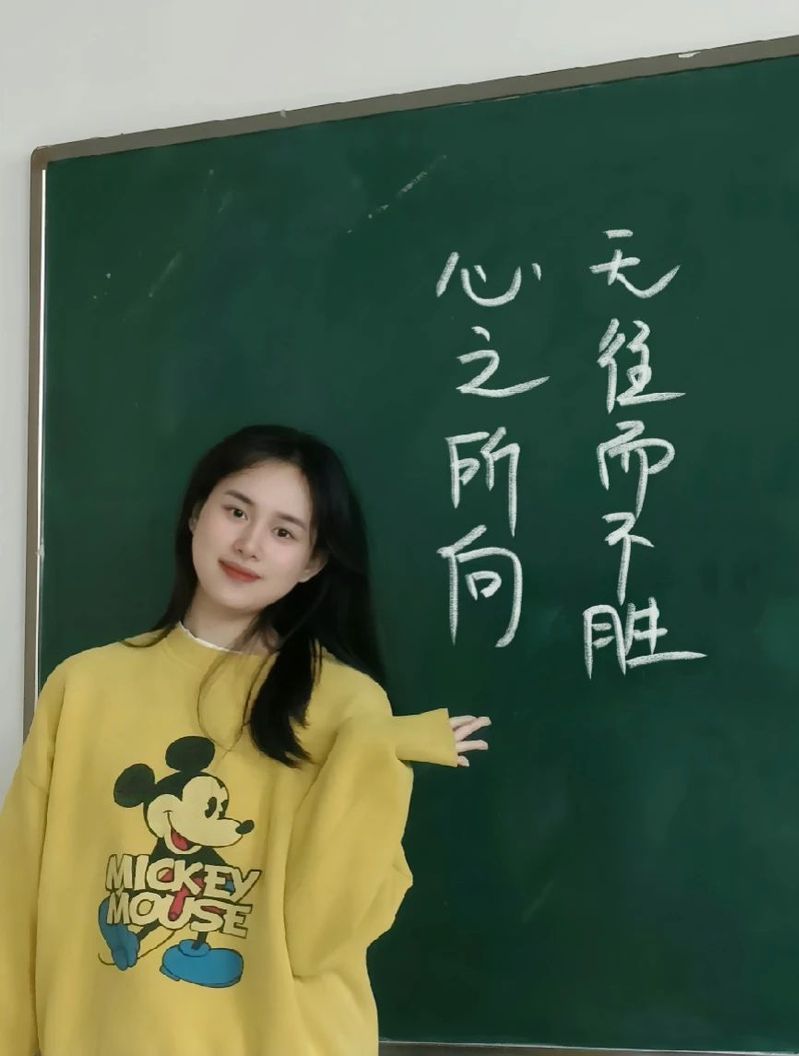 无往而不胜
心之所向
MICKEY
MOUSE